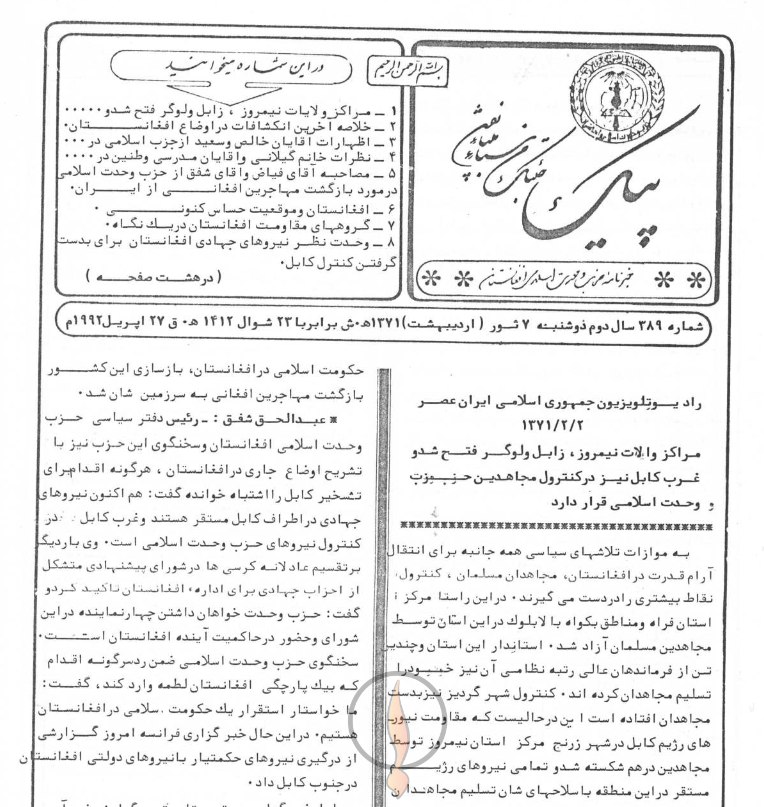 بسم الله الرحمن الرحیم
پیک
خبرنامه حزب وحدت اسلامی افغانستان
در این شماره میخوانید
۱ ـ مراکز ولایات نیمروز ، زابل ولوگر فتح شدو ۰۰۰۰۰
۲ ـ خلاصه آخرین انکشافات دراوضاع افغانستان۰
۳ ـ اظهارات اقایان خالص وسعید ازحزب اسلامی در ۰۰۰
۴ ـ نظرات خانم گیلانی واقایان مدرسی وطنین در ۰۰۰۰
۵ ـ مصاحبه آقای فیاض واقای شفق از حزب وحدت اسلامی
درمورد بازگشت مهاجرین افغانی از ایران۰
۶ ـ افغانستان وموقعیت حساس کنونی ۰
۷ ـ گروههای مقاومت افغانستان دریك نگاه۰
۸ ـ وحدت نظر نیروهای جهادی افغانستان برای بدست
گرفتن کنترل کابل۰
( درهشت صفحه )
شماره ۳۸۹ سال دوم دوشنبه ۷ ثور ( اردیبهشت)۱۳۷۱ه۰ش برابربا ۲۳ شوال ۱۴۱۲ ه۰ ق ۲۷ اپریل۱۹۹۲م
رادیوتلویزیون جمهوری اسلامی ایران عصر
۱۳۷۱/۲/۲
مراکز ولایات نیمروز ، زابل ولوگر فتح شدو
غرب کابل نیز درکنترول مجاهدین حزب
وحدت اسلامی قرار دارد
به موازات تلاشهای سیاسی همه جانبه برای انتقال
آرام قدرت درافغانستان، مجاهدان مسلمان ، کنترول
نقاط بیشتری رادردست می گیرند۰ دراین راستا مرکز
استان فراه ومناطق بکواه با لابلوك دراین استان توسط
مجاهدین مسلمان آزاد شد۰ استاندار این استان وچندین
تن از فرماندهان عالی رتبه نظامی آن نیز خودرا
تسلیم مجاهدان کرده اند۰ کنترول شهر گردیز نیزبدست
مجاهدان افتاده است این درحالیست که مقاومت نیرو
های رژیم کابل درشهر زرنج مرکز استان نیمروز توسط
مجاهدین درهم شکسته شدو تمامی نیروهای رژیم
مستقر دراین منطقه با سلاحهای شان تسلیم مجاهدان
حکومت اسلامی درافغانستان، بازسازی این کشور
بازگشت مهاجرین افغانی به سرزمین شان شد۰
* عبدالحق شفق : ـ رئیس دفتر سیاسی حزب
وحدت اسلامی افغانستان وسخنگوی این حزب نیز با
تشریح اوضاع جاری درافغانستان ، هرگونه اقدام برای
تسخیر کابل رااشتباه خوانده گفت: هم اکنون نیروهای
جهادی دراطراف کابل مستقر هستند وغرب کابل در
کنترول نیروهای حزب وحدت اسلامی است۰ وی باردیگر
برتقسیم عادلانه کرسی ها درشورای پیشنهادی متشکل
از احزاب جهادی برای اداره، افغانستان تاکید کردو
گفت: حزب وحدت خواهان داشتن چهارنماینده دراین
شورای وحضور درحاکمیت آینده افغانستان است۰
سخنگوی حزب وحدت اسلامی ضمن ردهرگونه اقدام
که بیك پارچگی افغانستان لطمه وارد کند، گفت:
ما خواستار استقرار یك حکومت اسلامی درافغانستان
هستیم۰ دراین حال خبر گزاری فرانسه امروز گزارشی
از درگیری نیروهای حکمتیار بانیروهای دولتی افغانستان
درجنوب کابل داد۰